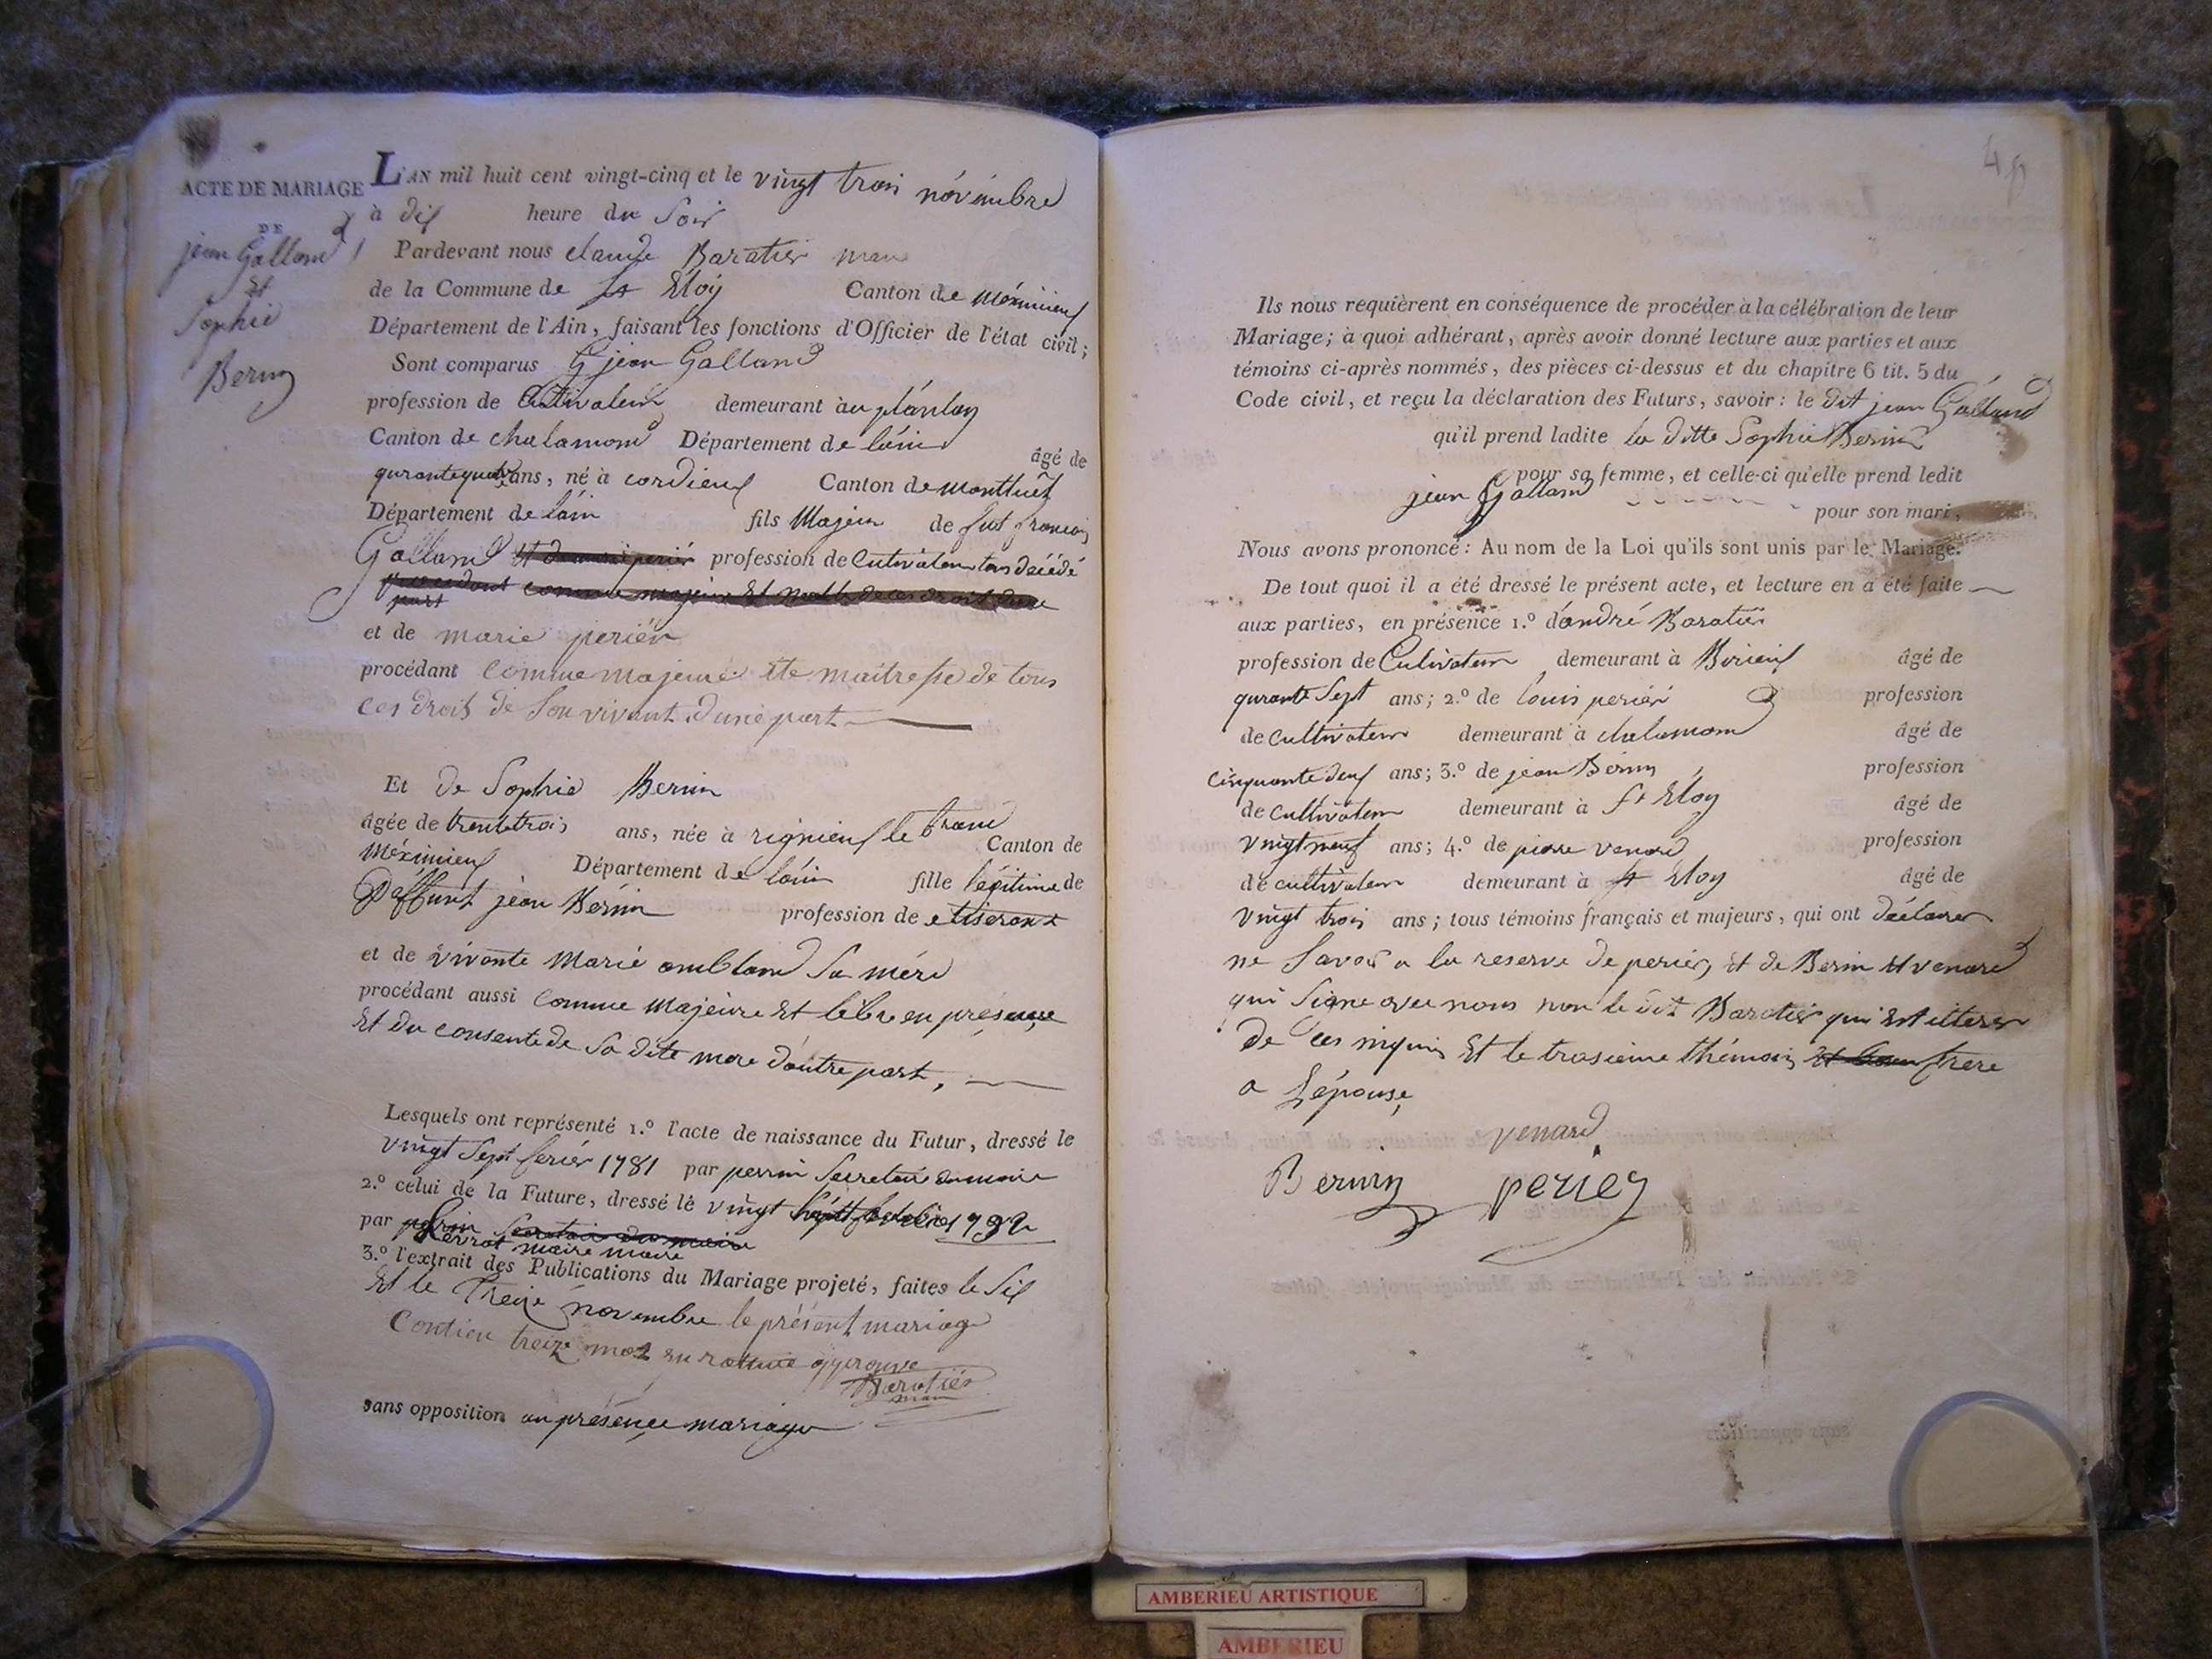 ACTE DE MARIAGE
DE
jean Galland
Et
Sophie
Bernin
L'AN mil huit cent vingt-cinq et le vingt trois novembre
à dix heure du Soir
Pardevant nous claude Baratier maire
de la Commune de St Eloy Canton de Méximieux
Département de l'Ain, faisant les fonctions d'Officier de l'état civil;
Sont comparus jean Galland
profession de Cultivateur demeurant au plantay
Canton de chalamond Département de láin âgé de
qurantequatre ans, né à cordieux Canton de montluêt
Département de láin fils Majeur de fut francois
Galland profession de Cultivateur décédé
part
et de marie periér
procédant comme majeure ete maitresse de tous
ces droits de Son vivant d'une part
Et de Sophie Bernin
âgée de trentetrois ans, née à rignieux le franc Canton de
Méximieux Département de láin fille légitime de
Daffunt jean Bérnin profession de etiserant
et de vivante Marie amblard Sa mére
procédant aussi Comme Majeure Et libre en présence
Et du consente de Sa dite mere d'autre part,
Lesquels ont représenté 1.º l'acte de naissance du Futur, dressé le
vingt Sept 1781 par perrin Secretaire
2.º celui de la Future, dressé le vingt
par maire
3.º l'extrait des Publications du Mariage projeté, faites le Six
Et le Treize novembre le présent mariage
Contien treize mot en rature approuve
Baratiér
maire
sans opposition au présence mariage
Ils nous requièrent en conséquence de procéder à la célébration de leur
Mariage; à quoi adhérant, après avoir donné lecture aux parties et aux
témoins ci-après nommés, des pièces ci-dessus et du chapitre 6 tit. 5 du
Code civil, et reçu la déclaration des Futurs, savoir: le dit jean Galland
qu'il prend ladite la ditte Sophie Bernin
pour sa femme, et celle-ci qu'elle prend ledit
jean Galland pour son mari,
Nous avons prononcé: Au nom de la Loi qu'ils sont unis par le Mariage.
De tout quoi il a été dressé le présent acte, et lecture en a été faite
aux parties, en présence 1.º d'andré Baratier
profession de Cultivateur demeurant à Birieux âgé de
qurante Sept ans; 2.º de louis periér profession
de cultivateur demeurant à chalamond âgé de
cinquante deux ans; 3.º de jean Bernin profession
de cultivateur demeurant à St Eloy âgé de
vingt neuf ans; 4.º de pierre venard profession
de cultivateur demeurant à St Eloy âgé de
vingt trois ans; tous témoins français et majeurs, qui ont déclarer
ne Savoir a la reserve de perier, Et de Bernin Et venard
qui Signe avec nous non le dit Baratier qui Est
de ces Et le trosieme thémoin frere
a L'épouse
venard
Bernin perier